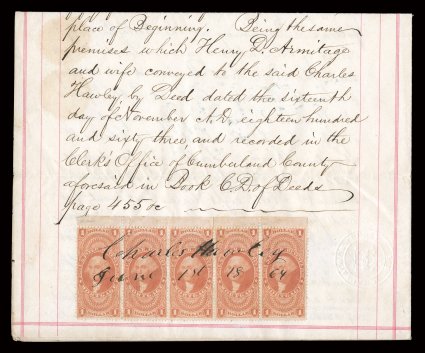 place of Beginning. Being the same
premises which Henry D. Armitage
and wife conveyed to the said Charles
Hawley by Deed dated the sixteenth
day of November A.D. eighteen hundred
and sixty three, and recorded in the
Clerk's Office of Cumberland County
aforesaid in Book C.D. of Deeds
page 455 &c
Charles Hawley
June 1st 1864